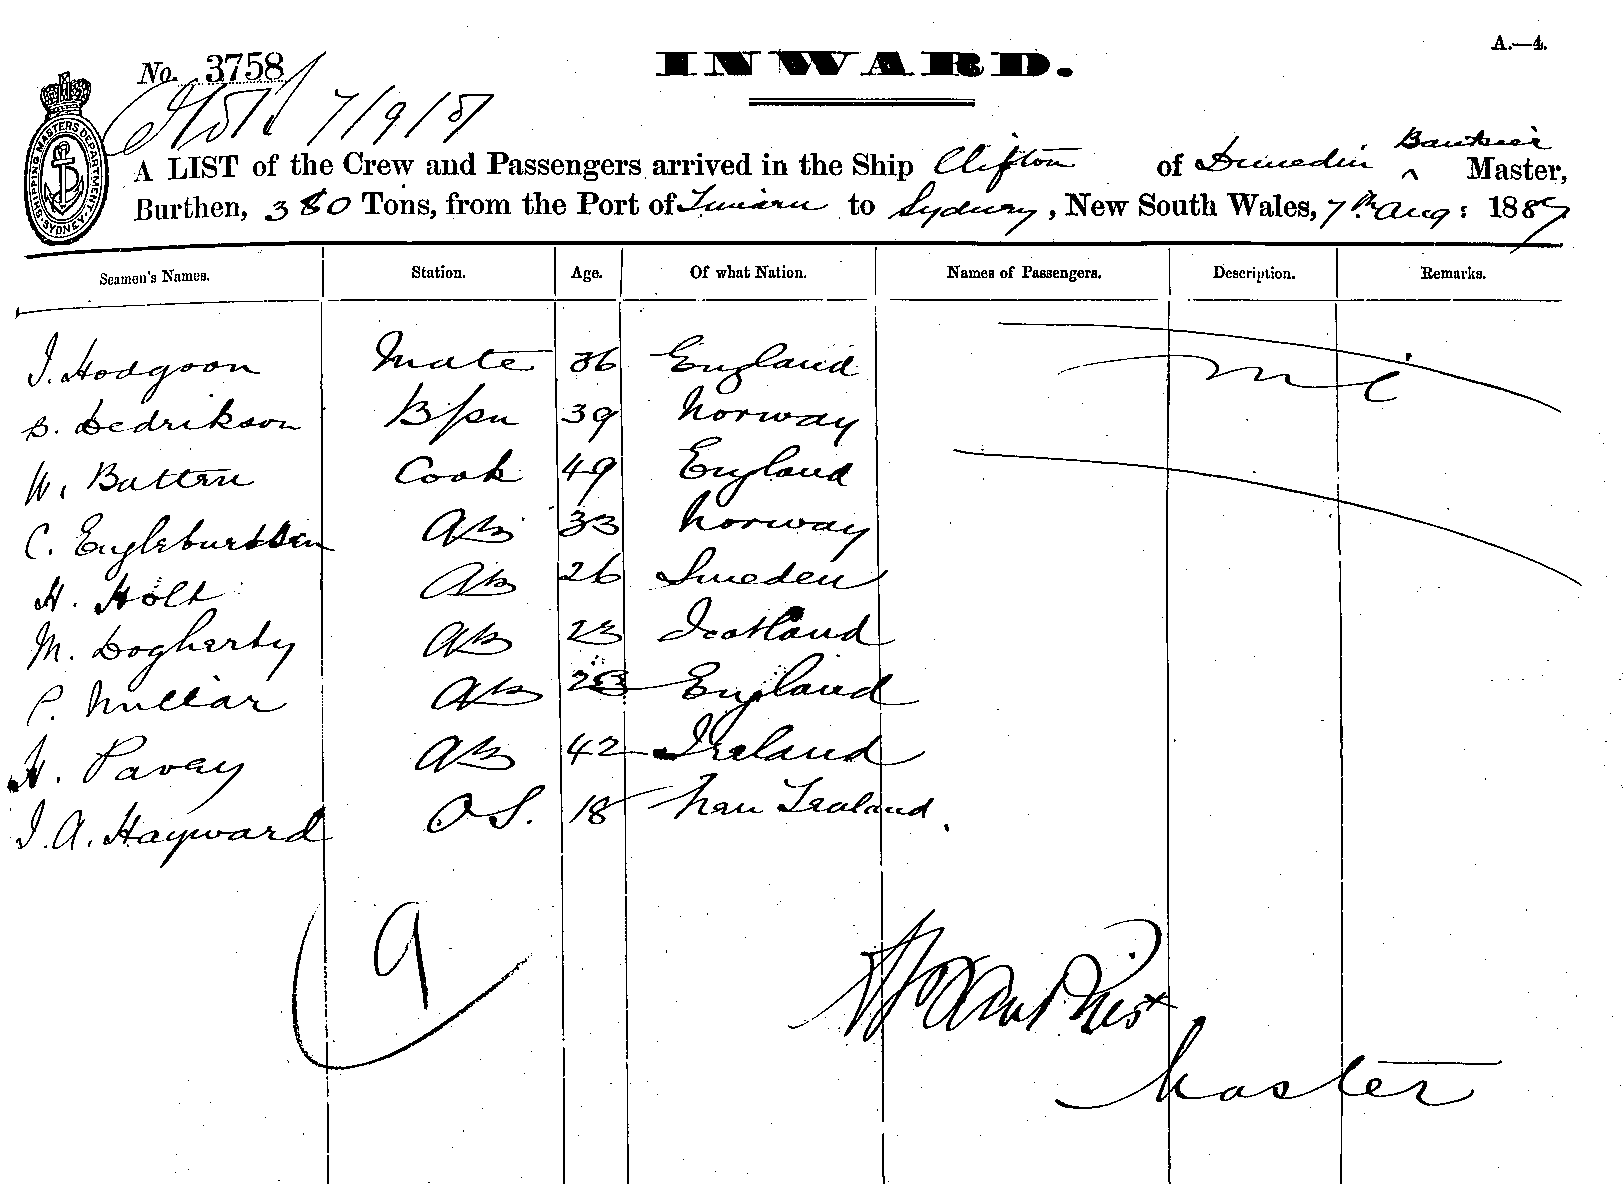 A.—4.
No. 3758
INWARD.
7/9/87
SHIPPING MASTERS DEPARTMENT SYDNEY
A LIST of the Crew and Passengers arrived in the Ship Clifton of Dunedin Master,
Burthen, 380 Tons, from the Port of Timaru to Sydney, New South Wales, 7th Aug: 1887
Seamen's Names. Station. Age. Of what Nation. Names of Passengers. Description. Remarks.
J. Hodgson Mate 36 England Nil
B. Dedrikson B/sn 39 Norway
W. Batten Cook 49 England
C. AB 33 Norway
H. Holt AB 26 Sweden
M. Dogherty AB 23 Scotland
P. Millar AB England
H. Pavey AB 42 Ireland
J. A. Hayward O S. 18 New Zealand
9
Master